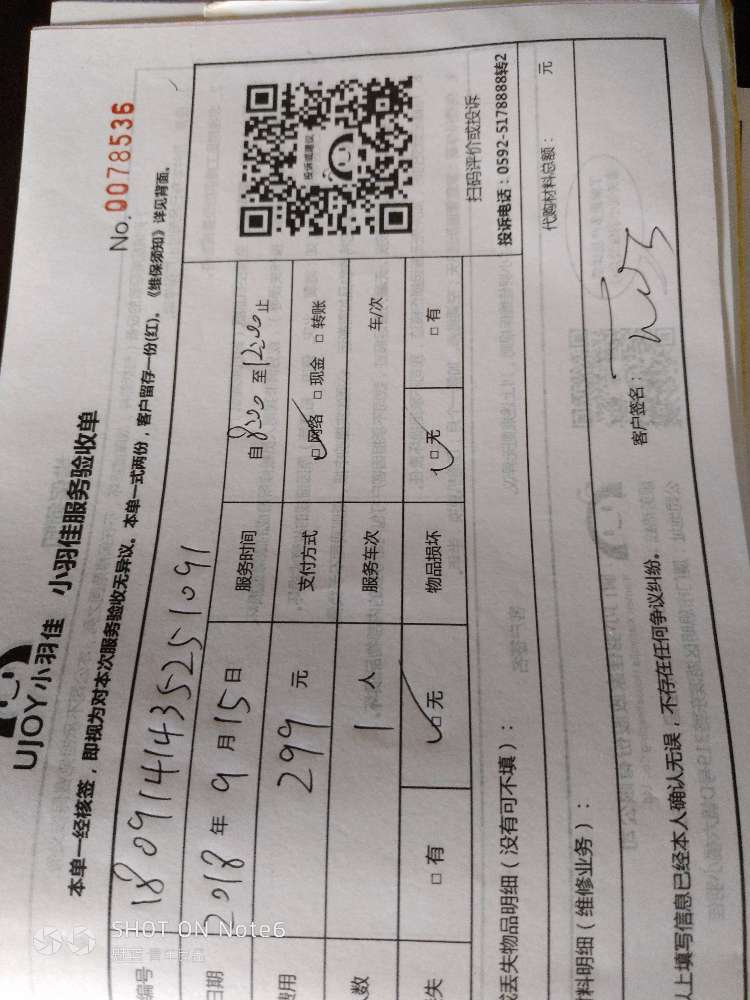 UJOY小羽佳 小羽佳服务验收单
No. 0078536
本单一经核签，即视为对本次服务验收无异议。本单一式两份，客户留存一份(红)。《维保须知》详见背面。
编号 1809141435251091
日期 2018年9月15日 服务时间 自8:00至12:00止
费用 299元 支付方式 □网络 □现金 □转账
人数 1人 服务车次 车/次
失 □有 □无 物品损坏 □无 □有
投诉或建议
扫码评价或投诉
投诉电话：0592-5178888转2
或丢失物品明细（没有可不填）：
料明细（维修业务）： 代购材料总额： 元
以上填写信息已经本人确认无误，不存在任何争议纠纷。 客户签名：
SHOT ON Note6